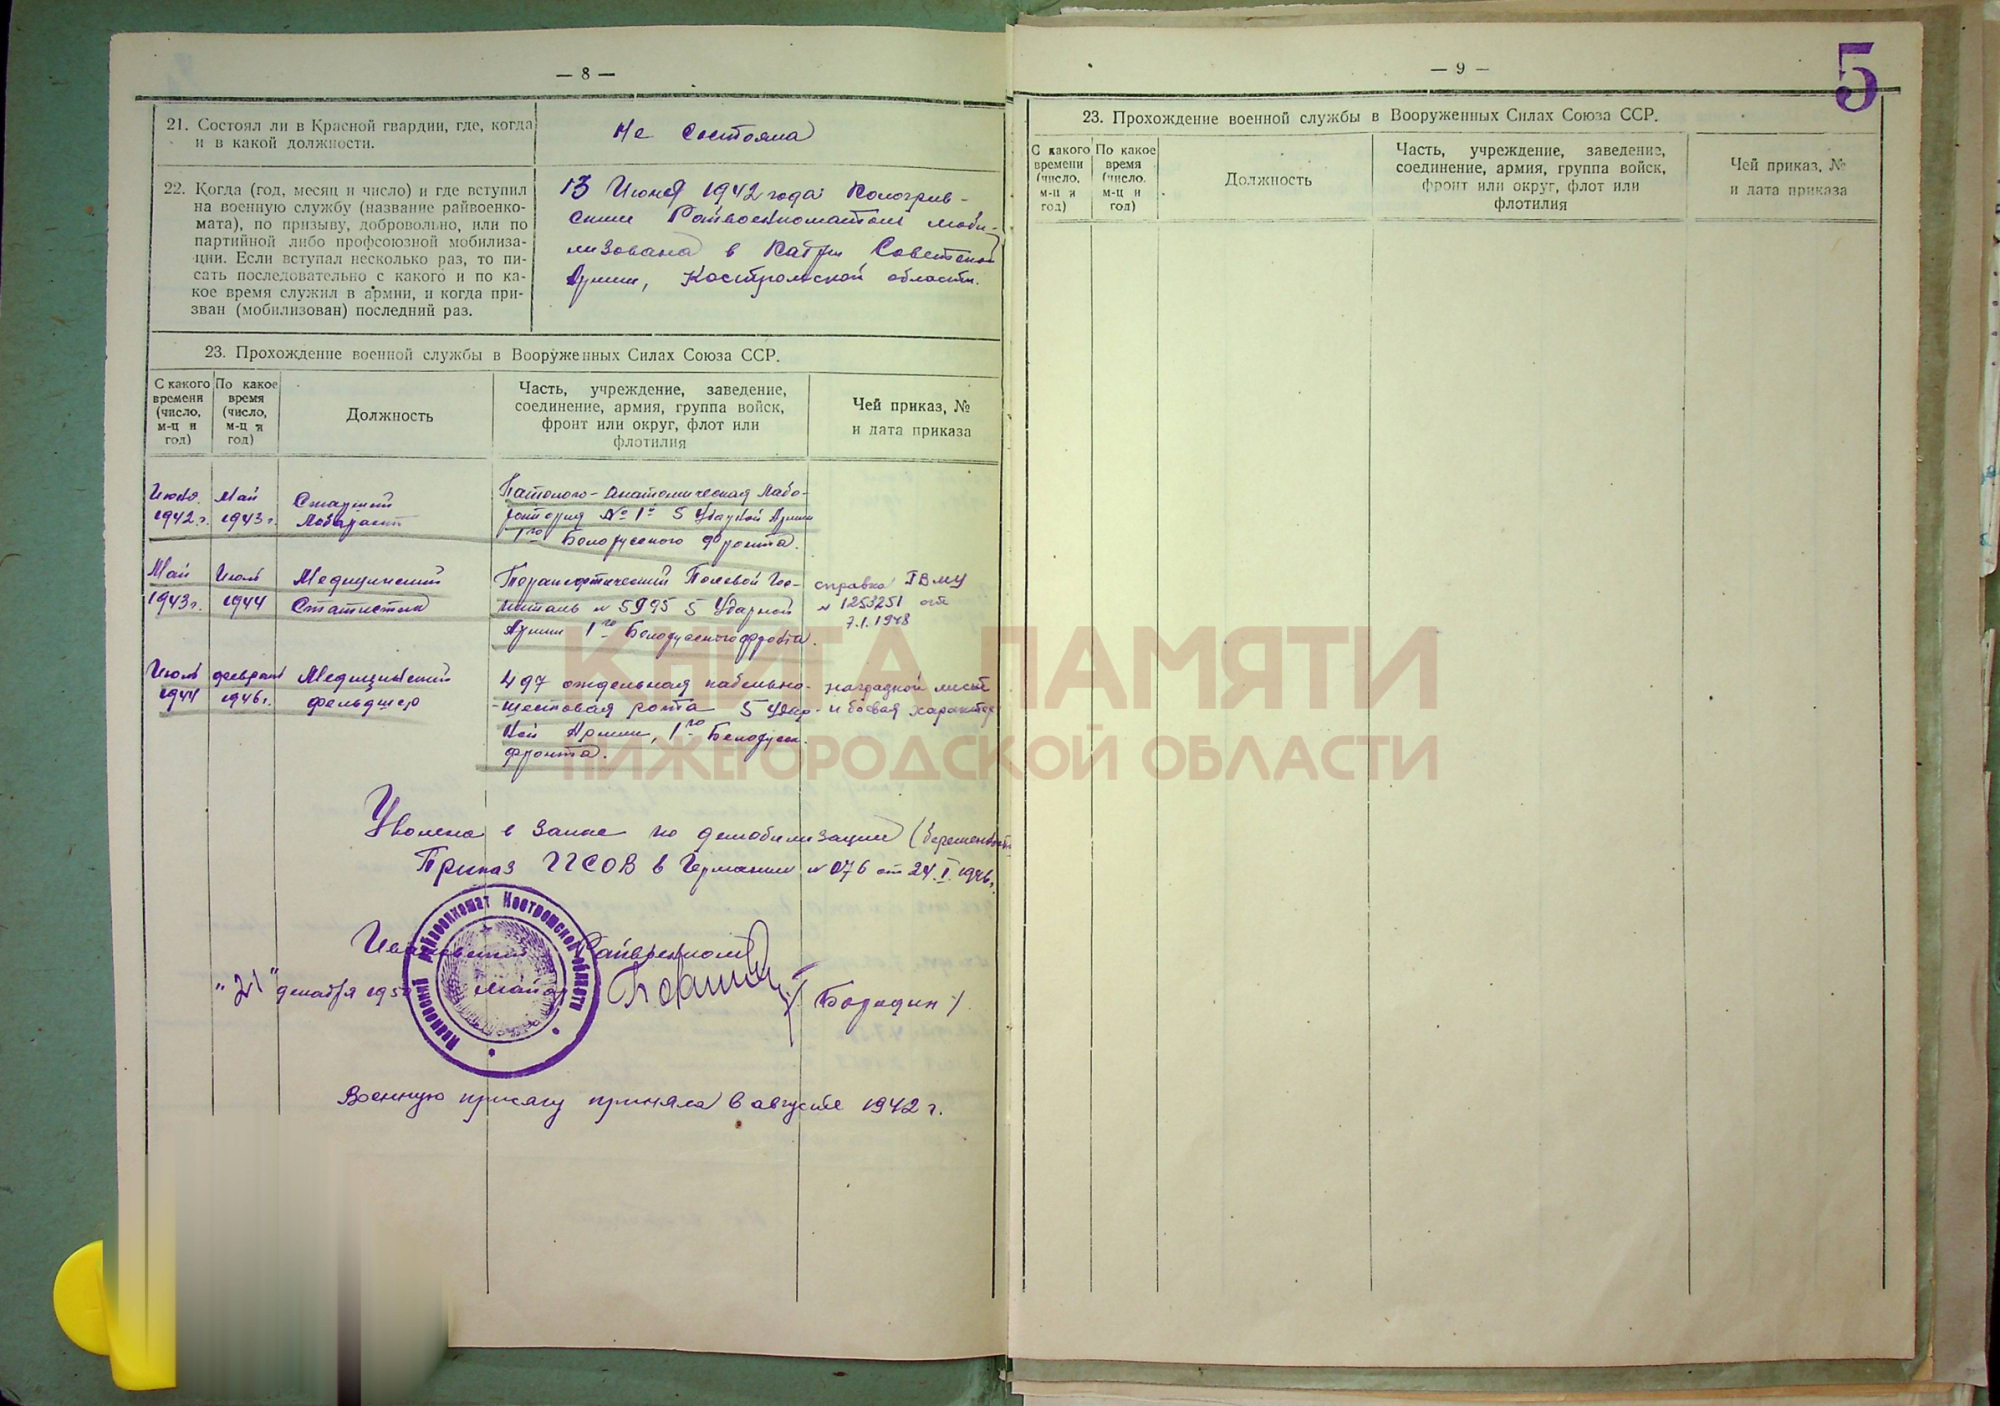 — 8 —
21. Состоял ли в Красной гвардии, где, когда
и в какой должности.
Не состояла
22. Когда (год, месяц и число) и где вступил
на военную службу (название райвоенко-
мата), по призыву, добровольно, или по
партийной либо профсоюзной мобилиза-
ции. Если вступал несколько раз, то пи-
сать последовательно с какого и по ка-
кое время служил в армии, и когда при-
зван (мобилизован) последний раз.
13 Июня 1942 года Кологрив-
ским Райвоенкоматом моби-
лизована в Кадры Советской
Армии, Костромской области.
23. Прохождение военной службы в Вооруженных Силах Союза ССР.
С какого
времени
(число,
м-ц и
год)
По какое
время
(число,
м-ц и
год)
Должность
Часть, учреждение, заведение,
соединение, армия, группа войск,
фронт или округ, флот или
флотилия
Чей приказ, №
и дата приказа
1942 г.
Май
1943 г.
Старший
Лаборант
Патолого-Анатомическая Лабо-
ратория № 1й 5 Ударной Армии
1го Белорусского Фронта.
Май
1943 г.
Июль
1944
Медицинский
Статистик
Терапевтический Полевой Гос-
питаль № 5995 5 Ударной
Армии 1го Белорусского фронта.
справка ГВМУ
№ 1253251 от
7.1.1948
Июль
1944
февраль
1946 г.
Медицинский
фельдшер
497 отдельная кабельно-
-шестовая рота 5 Удар-
ной Армии, 1го Белорусск.
фронта.
наградной лист
и боевая характер
Уволена в запас по демобилизации (беременность
Приказ ГСОВ в Германии № 076 от 24.I.1946 г.
Райвоенком
"21" декабря 195
Майор
/ Бородин /
Ивановский райвоенкомат Костромской области
Военную присягу приняла в августе 1942 г.
— 9 —
5
23. Прохождение военной службы в Вооруженных Силах Союза ССР.
С какого
времени
(число,
м-ц и
год)
По какое
время
(число,
м-ц и
год)
Должность
Часть, учреждение, заведение,
соединение, армия, группа войск,
фронт или округ, флот или
флотилия
Чей приказ, №
и дата приказа
КНИГА ПАМЯТИ
НИЖЕГОРОДСКОЙ ОБЛАСТИ